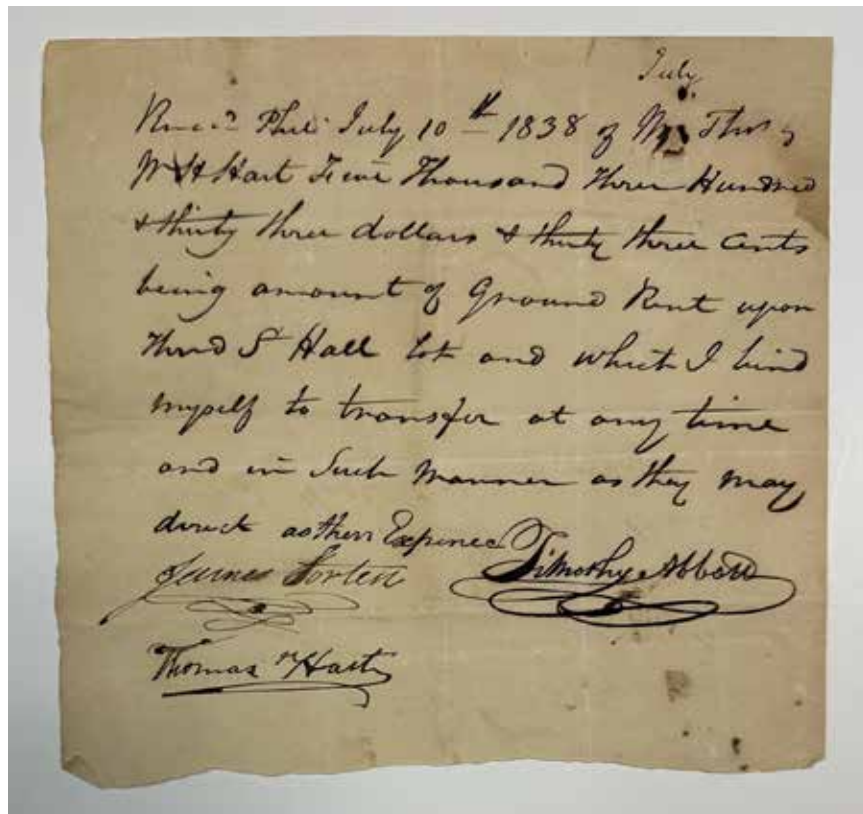 July
Phila July 10th 1838 of Thos
W H Hart Thousand Three Hundred
& thirty three dollars & thirty three Cents
being amount of Ground Rent upon
Third St Hall Lot and which I bind
myself to transfer at any time
and in Such Manner as they may
direct as their Expence
James Forten Timothy Abbott
Thomas Hart